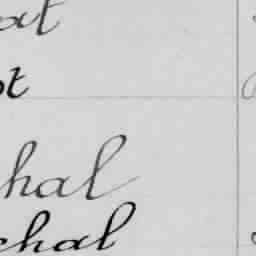 at
ot
hal
chal